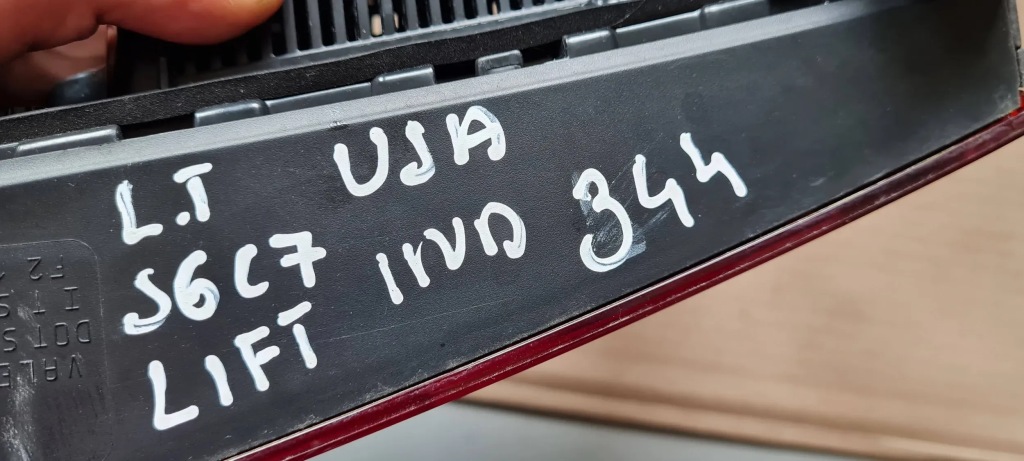 L.T USA
S6C7 IIVD 344
LIFT
VALE
DOT S